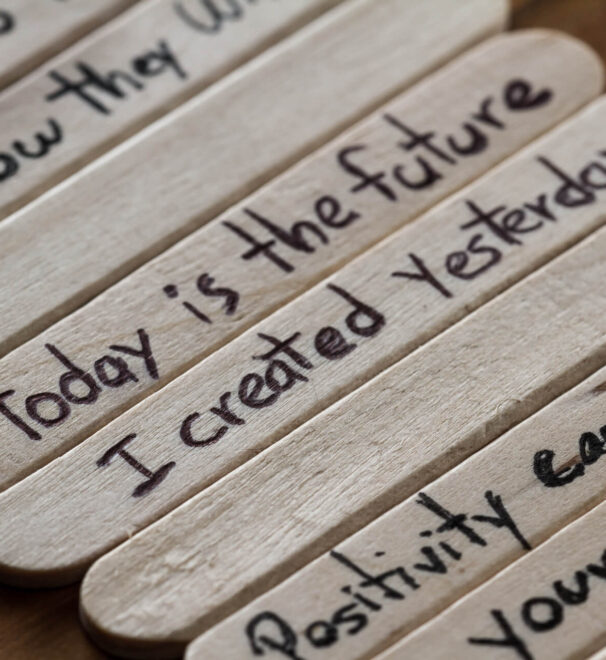 ow they
Today is the future
I created yesterday
Positivity
your